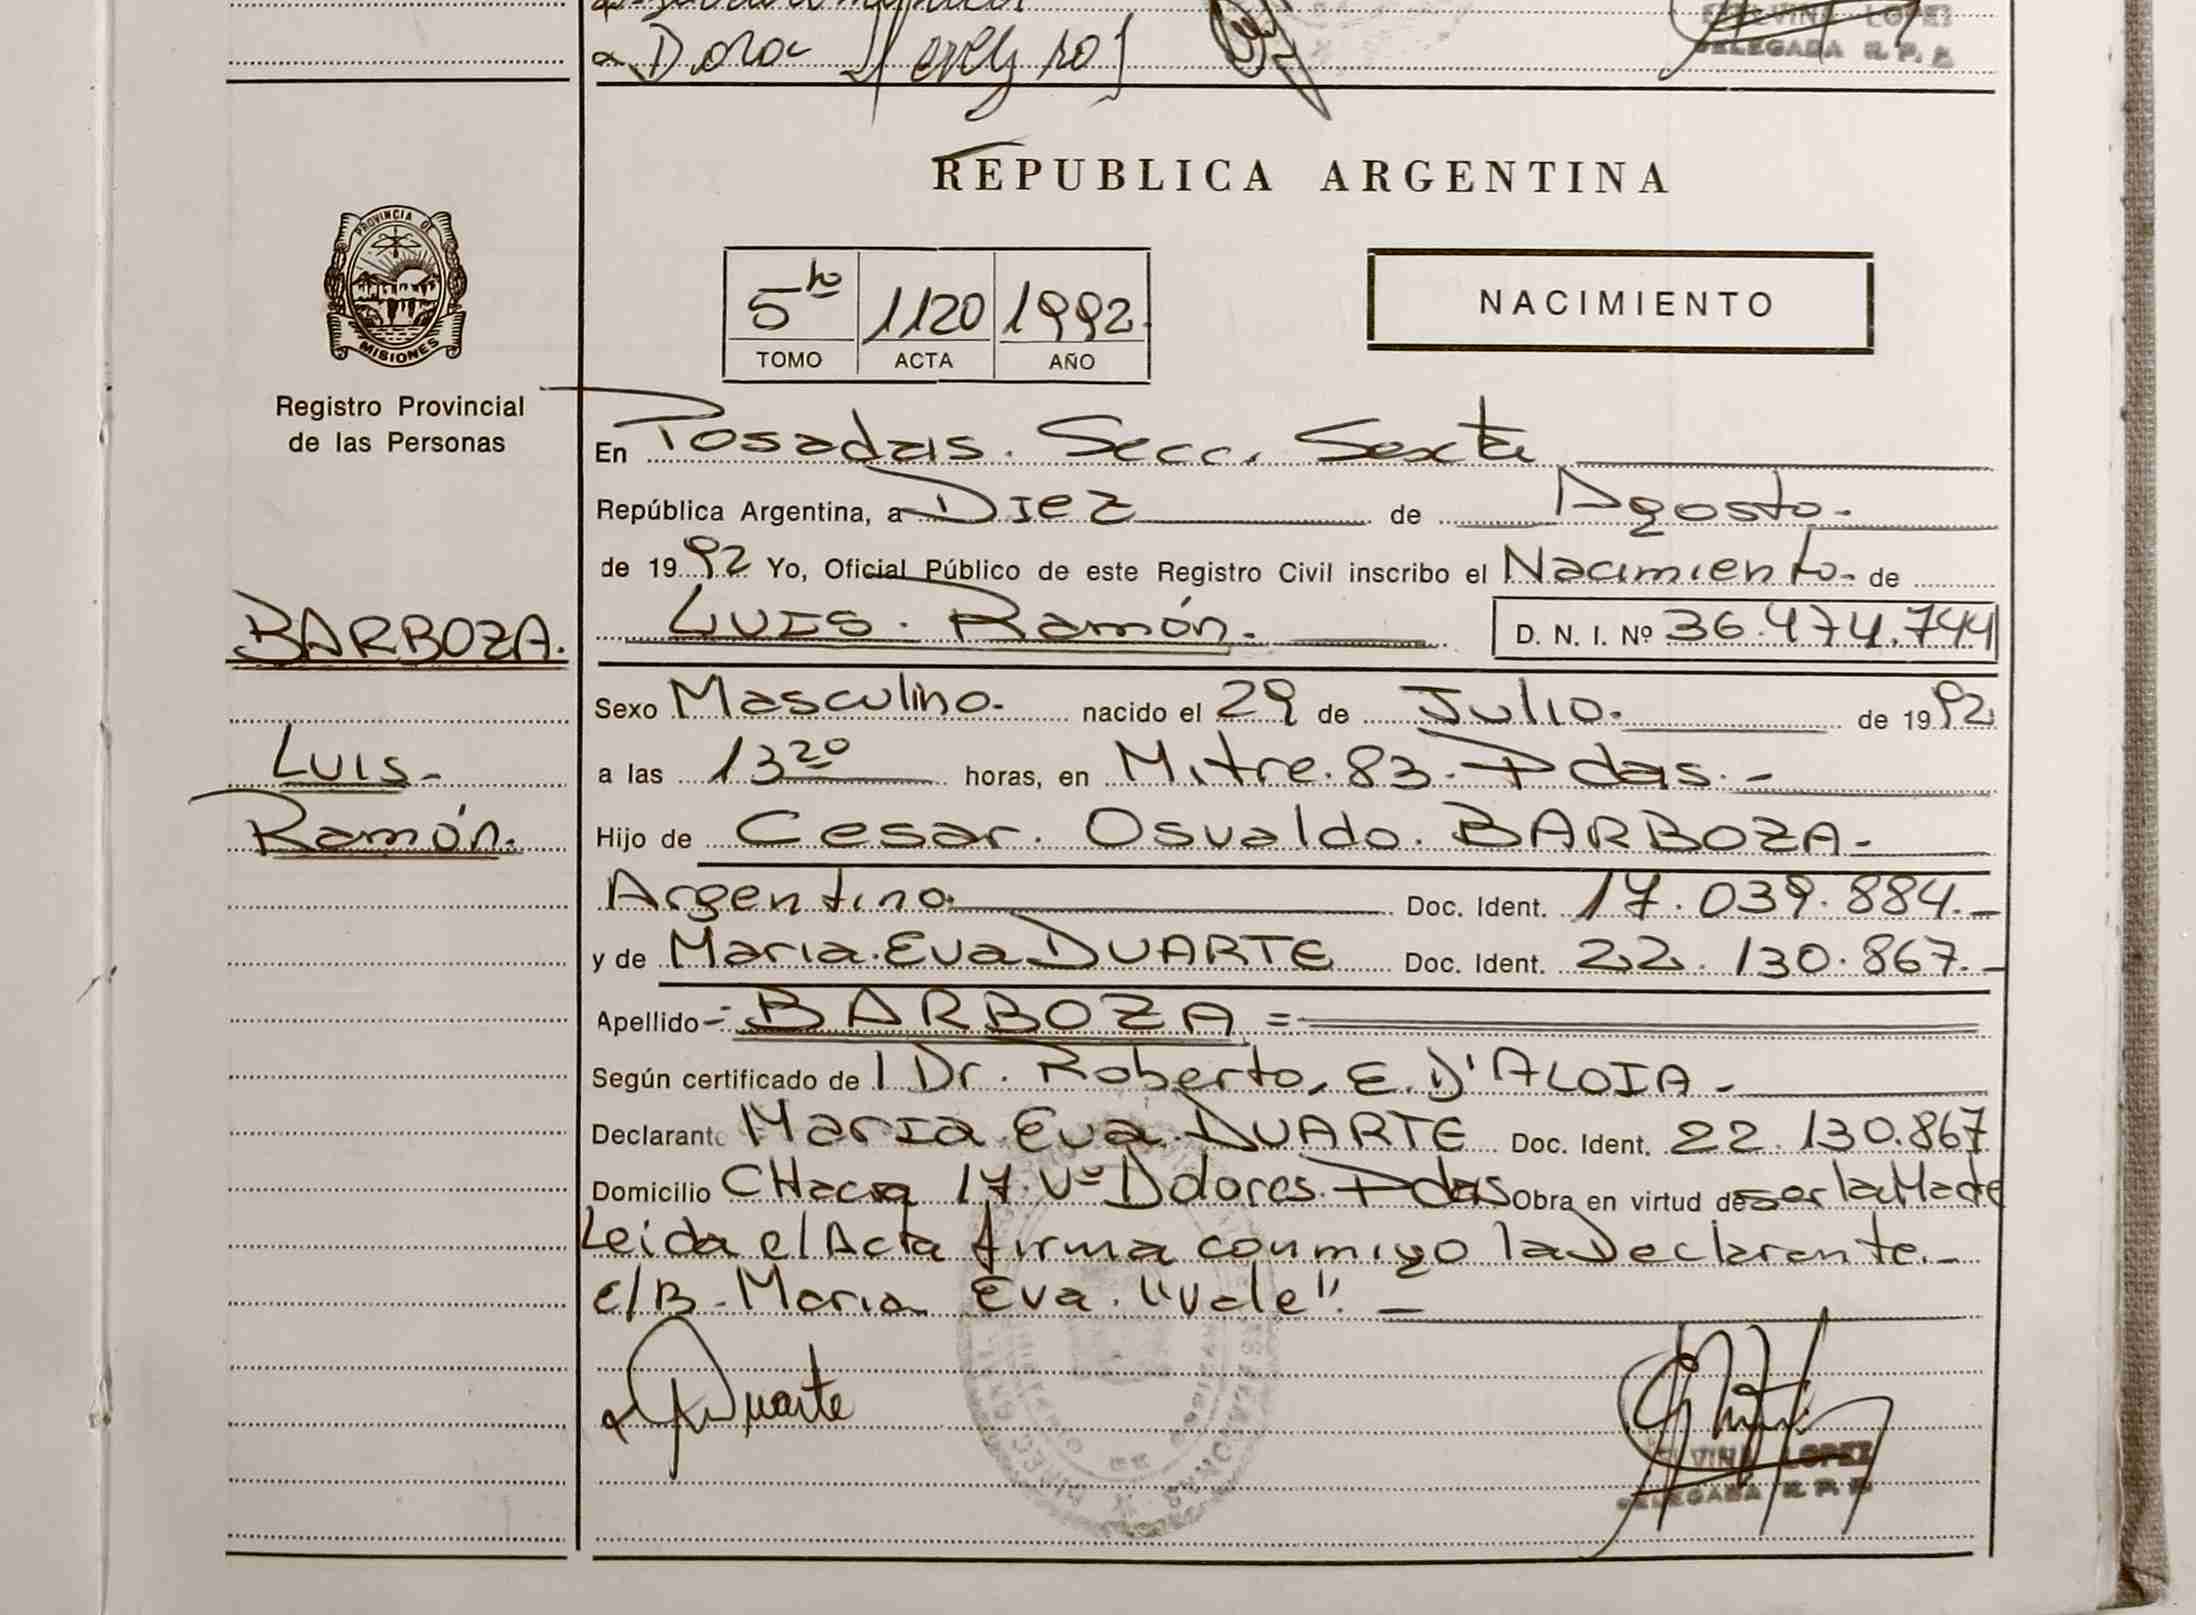 Dora
ELVINA LOPEZ
DELEGADA R. P. P.
REPUBLICA ARGENTINA
PROVINCIA DE
MISIONES
Registro Provincial
de las Personas
5to 1120 1992
TOMO ACTA AÑO
NACIMIENTO
En Posadas. Secc. Sexta
República Argentina, a Diez de Agosto.
de 1992 Yo, Oficial Público de este Registro Civil inscribo el Nacimiento. de
Luis. Ramón. D. N. I. Nº 36.474.744
BARBOZA.
Luis-
Ramón.
Sexo Masculino. nacido el 29 de Julio. de 1992
a las 13 20 horas, en Mitre. 83. Pdas. -
Hijo de Cesar. Osvaldo. BARBOZA-
Argentino. Doc. Ident. 17.039.884.-
y de Maria. Eva DUARTE Doc. Ident. 22.130.867.-
Apellido -: BARBOZA =
Según certificado del Dr. Roberto. E. D'ALOIA -
Declarante Maria Eva. DUARTE Doc. Ident. 22.130.867
Domicilio CHacra 17. Vª Dolores. Pdas Obra en virtud de ser la Madre
Leida el Acta firma conmigo la Declarante.-
e/B- Maria Eva. "Vale". -
Duarte
ELVINA LOPEZ
DELEGADA R. P. P.